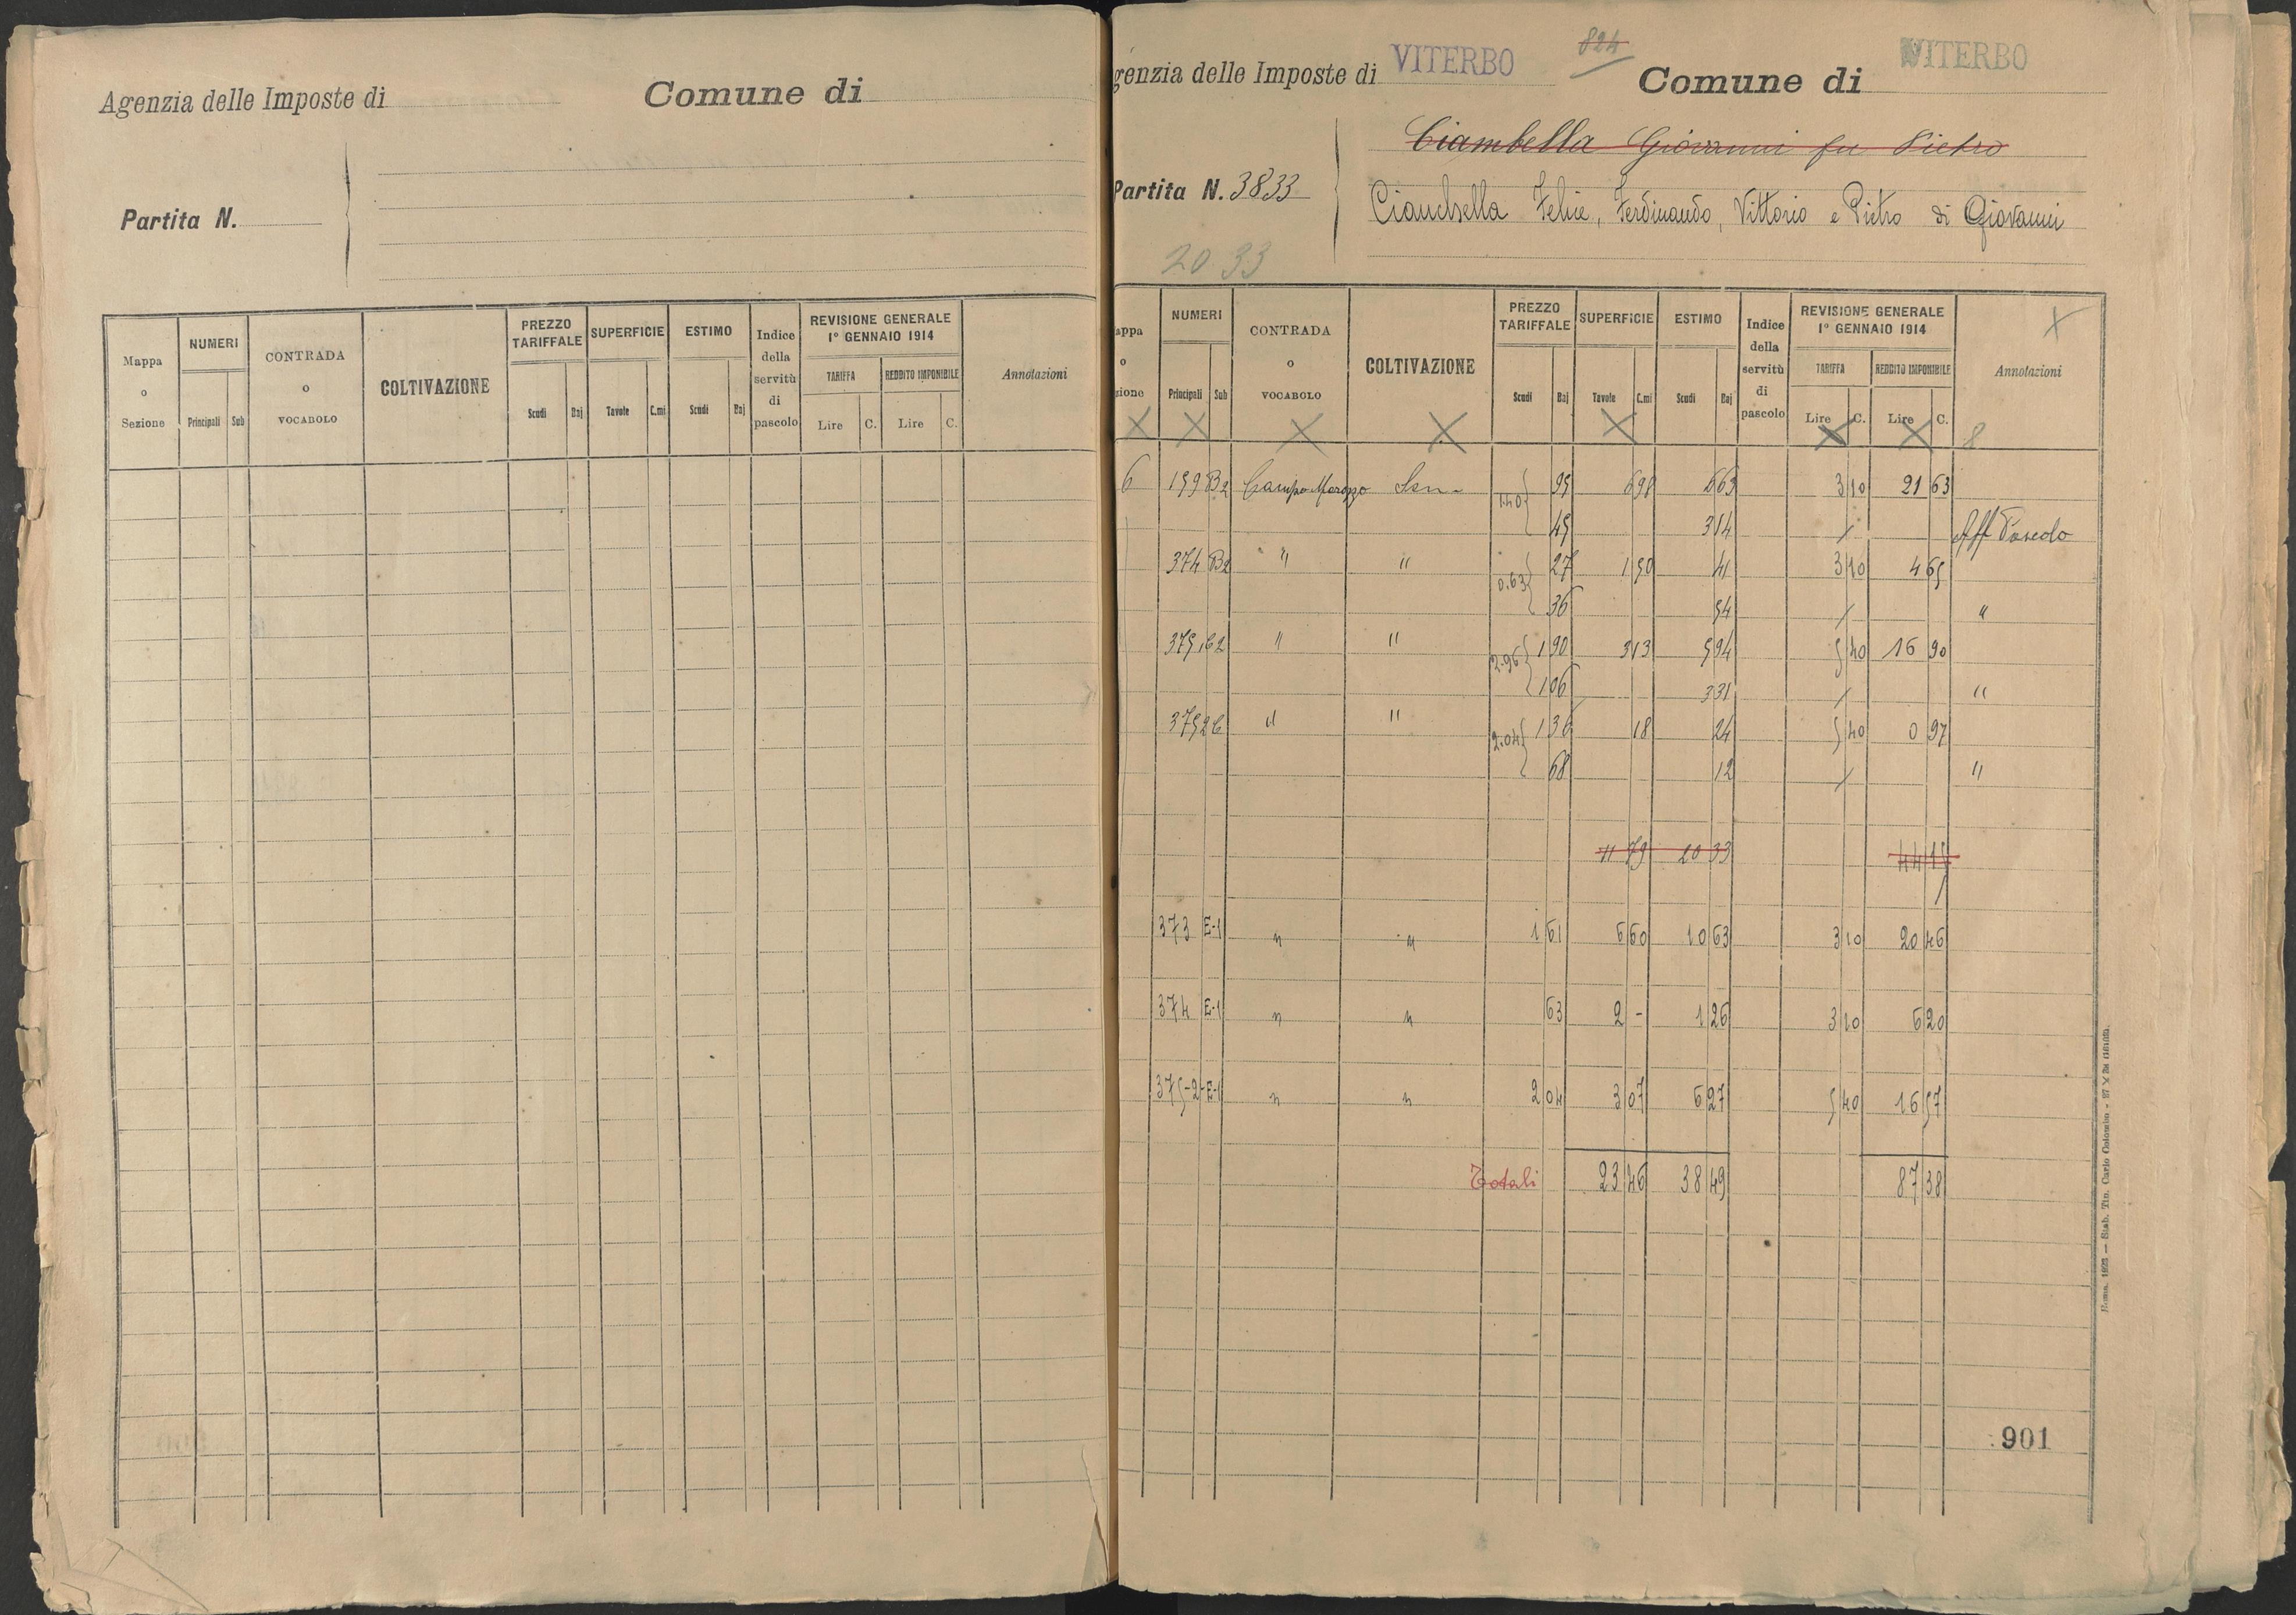 Agenzia delle Imposte di
Comune di
Partita N.
Mappa o Sezione
NUMERI
Principali Sub
CONTRADA o VOCABOLO
COLTIVAZIONE
PREZZO TARIFFALE
Scudi Baj
SUPERFICIE
Tavole C.mi
ESTIMO
Scudi Baj
Indice della servitù di pascolo
REVISIONE GENERALE
1° GENNAIO 1914
TARIFFA REDDITO IMPONIBILE
Lire C. Lire C.
Annotazioni
genzia delle Imposte di VITERBO
824
Comune di VITERBO
Ciambella Giovanni fu Pietro
Partita N. 3833
Ciambella Felice, Ferdinando, Vittorio e Pietro di Giovanni
20 33
appa o zione
NUMERI
Principali Sub
CONTRADA o VOCABOLO
COLTIVAZIONE
PREZZO TARIFFALE
Scudi Baj
SUPERFICIE
Tavole C.mi
ESTIMO
Scudi Baj
Indice della servitù di pascolo
REVISIONE GENERALE
1° GENNAIO 1914
TARIFFA REDDITO IMPONIBILE
Lire C. Lire C.
Annotazioni
8
6 159 B2 Campo Morozzo Sem 1.40 95 6 98 6 63 3 10 21 63
45 3 14 / Aff Pascolo
374 B2 " " 0.63 27 1 50 41 3 10 4 65
36 54 / "
375 62 " " 2.96 1 90 3 13 5 94 5 40 16 90
1 06 3 31 / "
375 26 " " 2.04 1 36 18 24 5 40 0 97
68 12 / "
11 79 20 33 44 15
373 E-1 " " 1 61 6 60 10 63 3 10 20 46
374 E-1 " " 63 2 - 1 26 3 10 6 20
375-2-E-1 " " 2 04 3 07 6 27 5 40 16 57
Totali 23 46 38 49 87 38
901